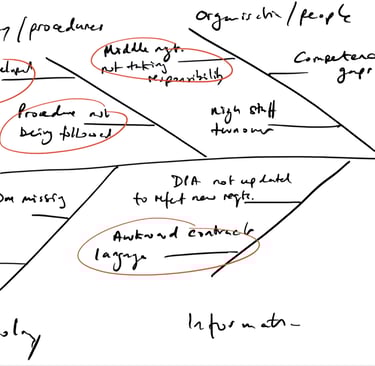 y/procedures
Organisation/people
Middle mgt.
not taking
responsibility
Competence
gaps
Procedure not
being followed
High staff
turnover
DPA not updated
to reflect new reqts.
missing
Awkward contracts
language
Information